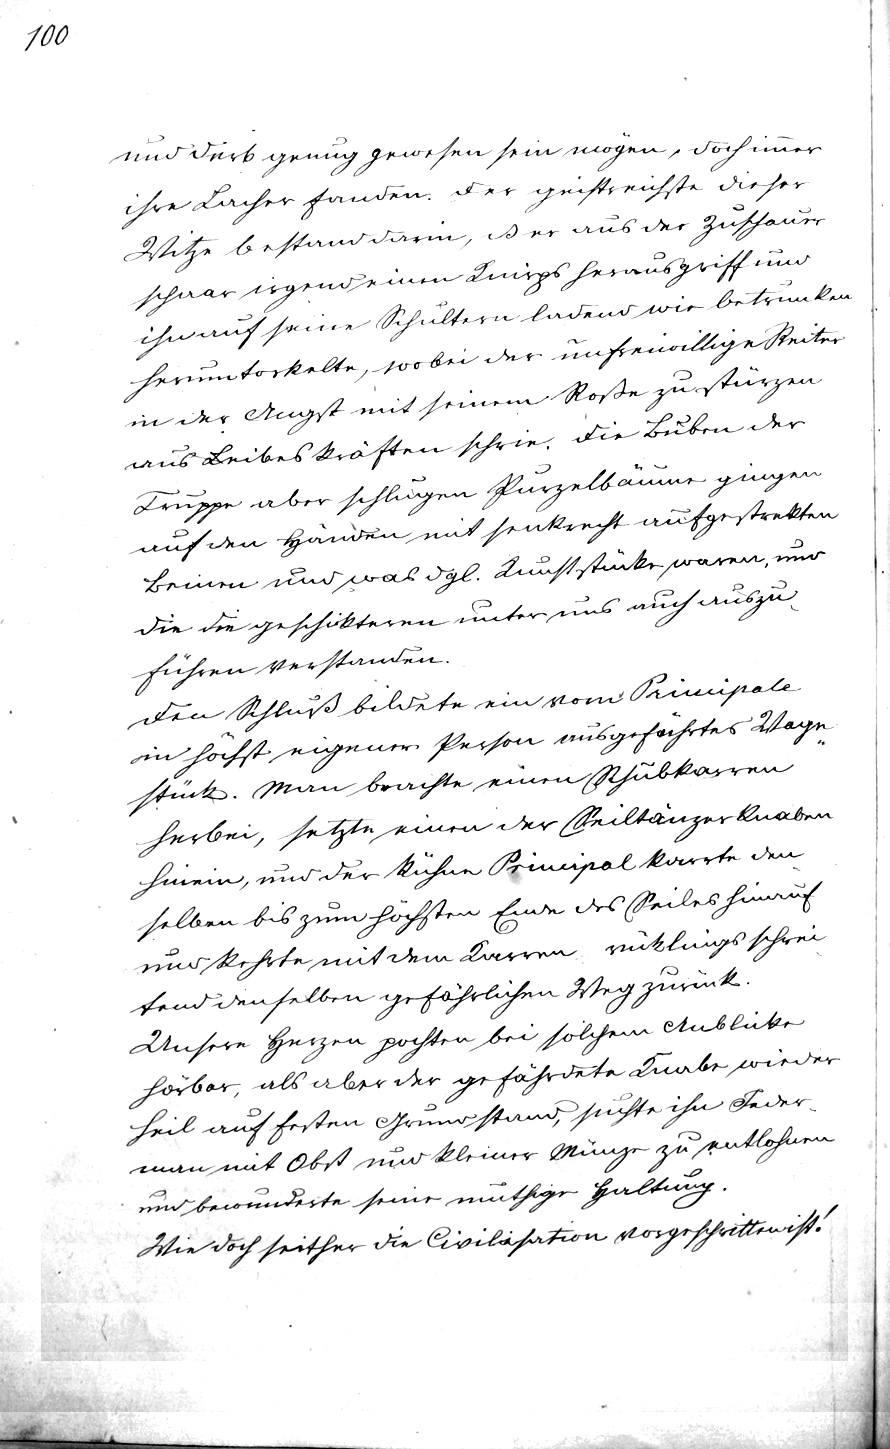 100
und derb genug gewesen sein mögen, doch im̅er
ihre Lacher fanden. Der geistreichste dieser
Witze bestand darin, dß er aus der Zuschauer
schaar irgend einen Knirps herausgriff und
ihn auf seine Schultern ladend wie betrunken
herumtorkelte, wobei der unfreiwillige Reiter
in der Angst mit seinem Roße zu stürzen
aus Leibeskräften schrie. Die Buben der
Truppe aber schlugen Purzelbäume gingen
auf den Händen mit senkrecht aufgestrekten
Beinen und was dgl. Kunststücke waren, und
die die geschikteren unter uns auch auszu-
führen verstanden.
Den Schluß bildete ein vom Principale
in höchst eigener Person ausgeführtes Wage
stück. Man brachte einen Schubkarren
herbei, setzte einen der Seiltänzerknaben
hinein, und der kühne Principal karrte den-
selben bis zum höchsten Ende des Seiles hinauf
und kehrte mit dem Karren rücklings schrei-
tend denselben gefährlichen Weg zurück.
Unsere Herzen pochten bei solchem Anblicke
hörbar, als aber der gefährdete Knabe wieder
heil auf festem Grund stand, suchte ihn Jeder-
man mit Obst und kleiner Münze zu entlohnen
und bewunderte seine muthige Haltung.
Wie doch seither die Civilisation vorgeschritten ist!